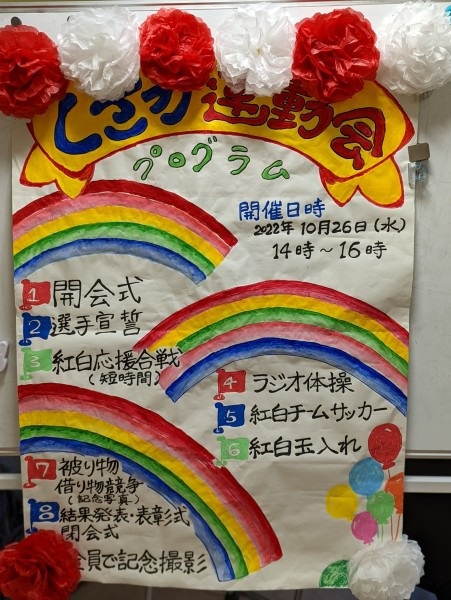 運動会
プログラム
開催日時
2022年10月26日(水)
14時～16時
1 開会式
2 選手宣誓
3 紅白応援合戦
(短時間)
4 ラジオ体操
5 紅白チームサッカー
6 紅白玉入れ
7 被り物
借り物競争
(記念写真)
8 結果発表・表彰式
閉会式
全員で記念撮影